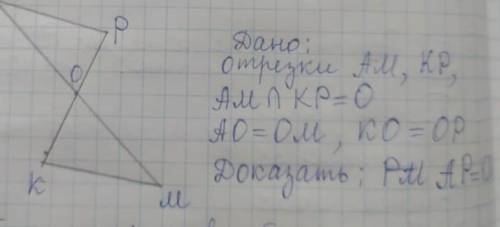 P
O
K
M
Дано:
отрезки AM, KP,
AM∩KP=O
AO=OM, KO=OP
Доказать: PM AP=